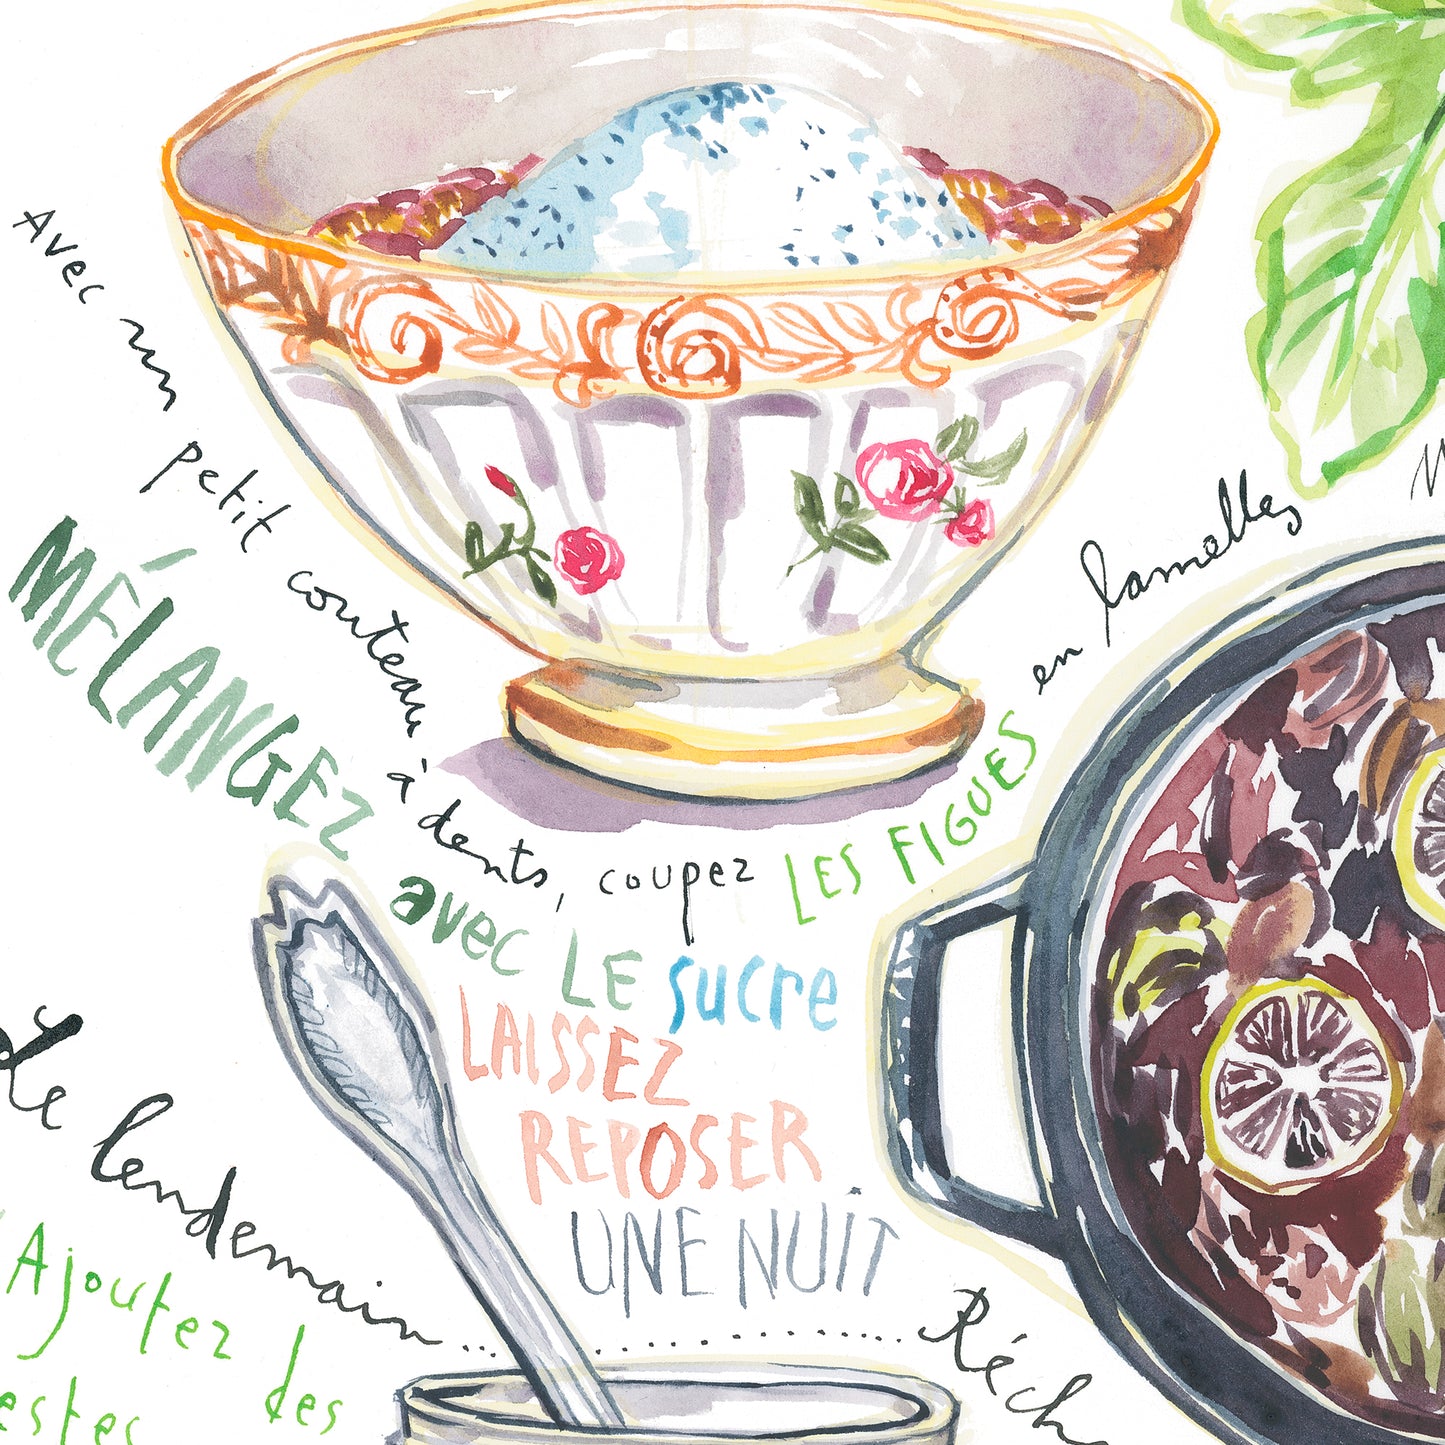 Avec un petit couteau à dents, coupez LES FIGUES en lamelles
MÉLANGEZ avec LE sucre
LAISSEZ
REPOSER
UNE NUIT
Le lendemain.................. Réch
Ajoutez des
estes